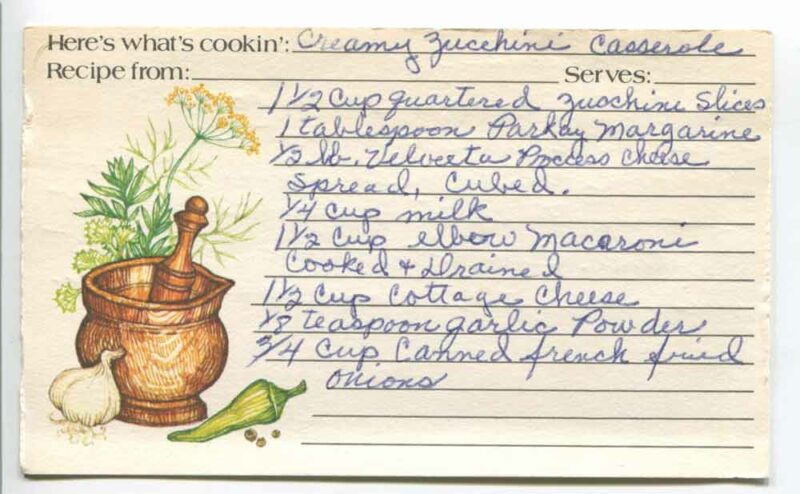 Here's what's cookin': Creamy Zucchini Casserole
Recipe from: Serves:
1 1/2 Cup quartered zucchini Slices
1 tablespoon Parkay Margarine
1/2 lb. Velveeta Process Cheese
Spread, Cubed.
1/4 Cup milk
1 1/2 Cup elbow Macaroni
Cooked & Drained
1 1/2 Cup Cottage Cheese
1/8 teaspoon garlic Powder
3/4 Cup Canned french fried
onions